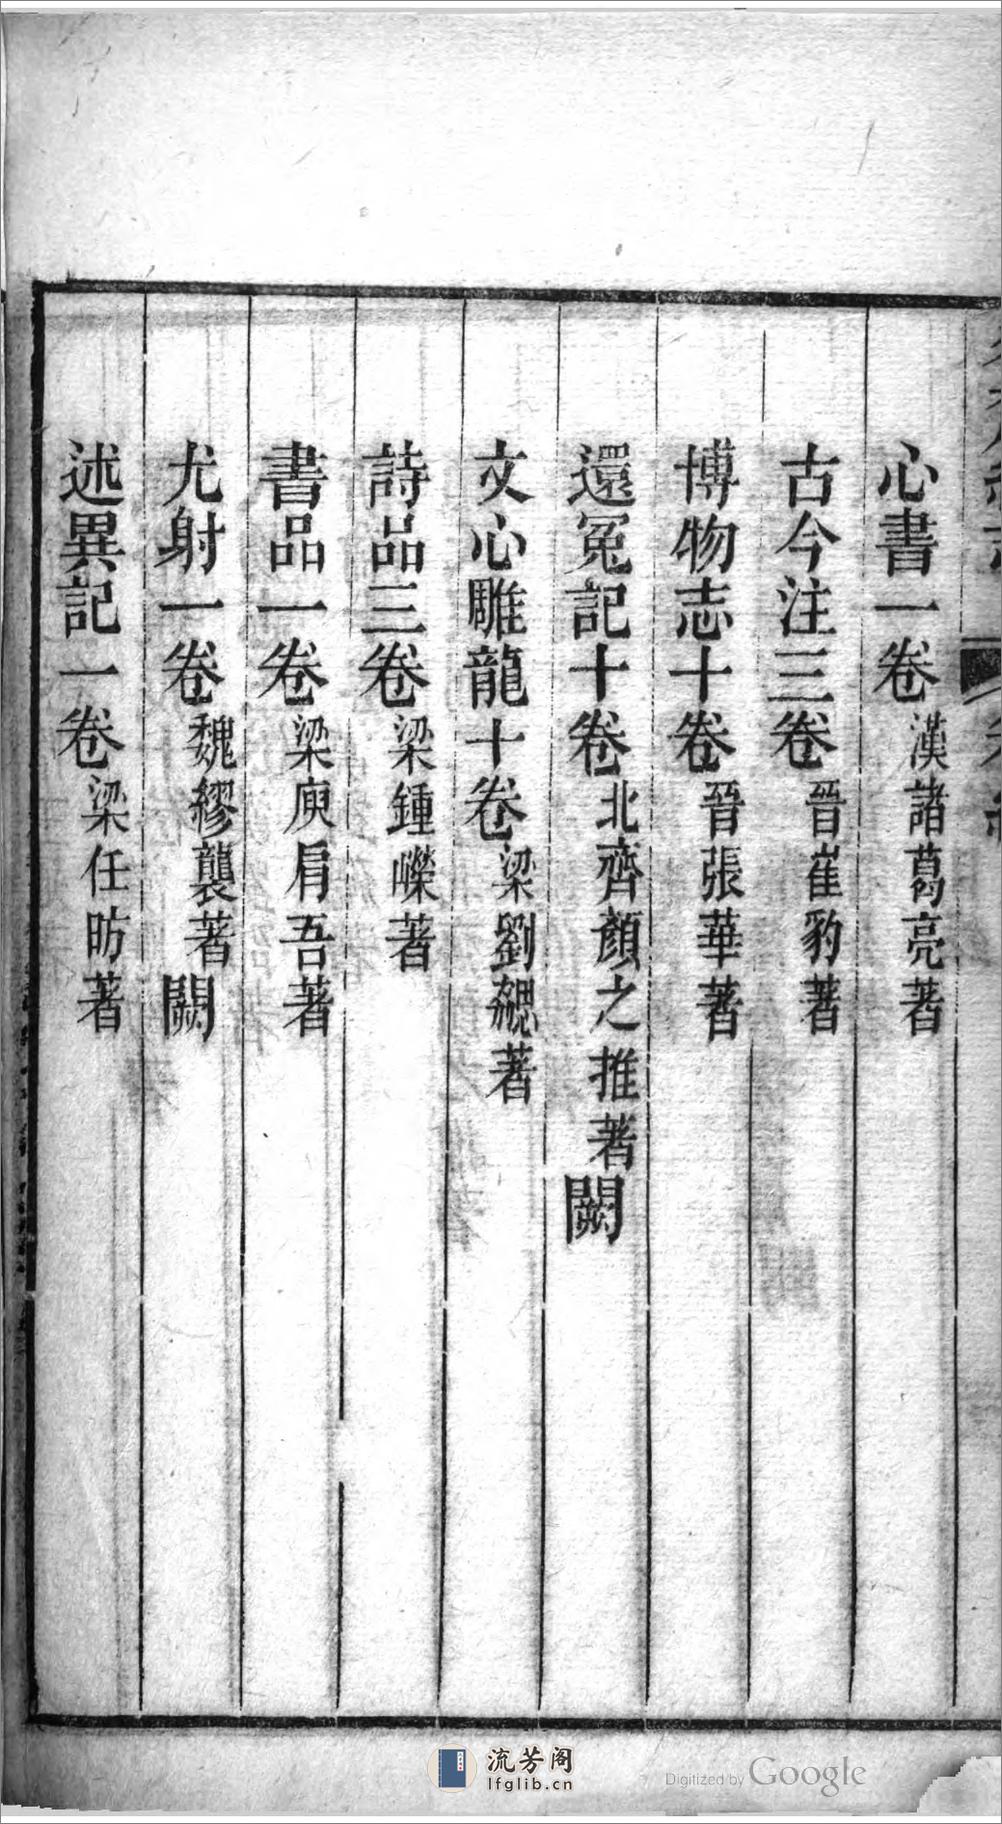 心書一卷漢諸葛亮著
古今注三卷晉崔豹著
博物志十卷晉張華著
還冤記十卷北齊顏之推著闕
文心雕龍十卷梁劉勰著
詩品三卷梁鍾嶸著
書品一卷梁庾肩吾著
尤射一卷魏繆襲著闕
述異記一卷梁任昉著
流芳阁
lfglib.cn
Digitized by Google